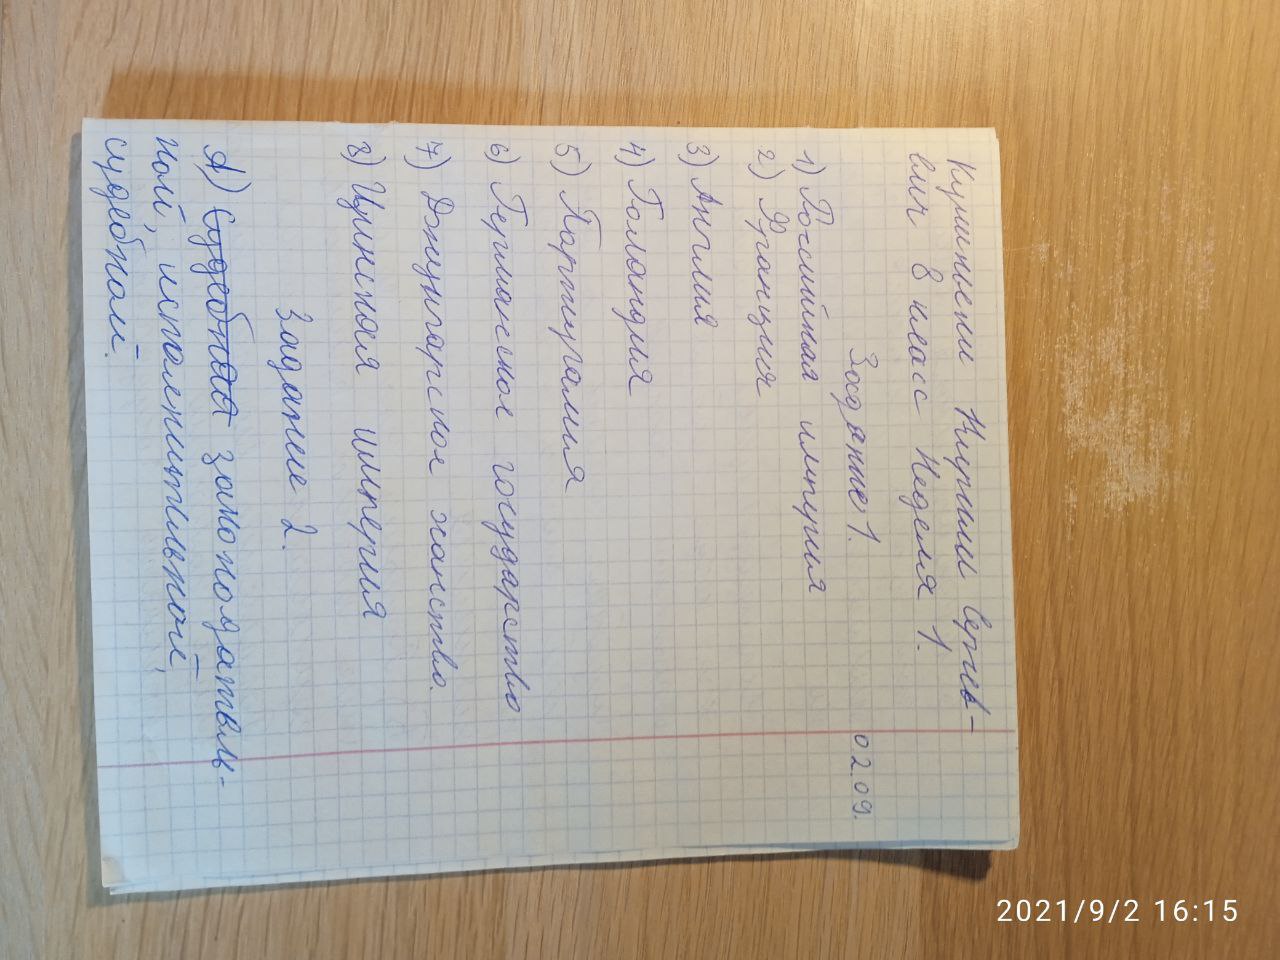 2021/9/2 16:15
Кирилл Сергее-
вич 8 класс Неделя 1.
Задание 1. 02.09.
1) Российская империя
2) Франция
3) Англия
4) Голандия
5) Португалия
6) Германское государство
7) Джунгарское ханство.
8) Цинская империя
Задание 2.
А) Судебная законодатель-
ной, исполнительной,
судебной.